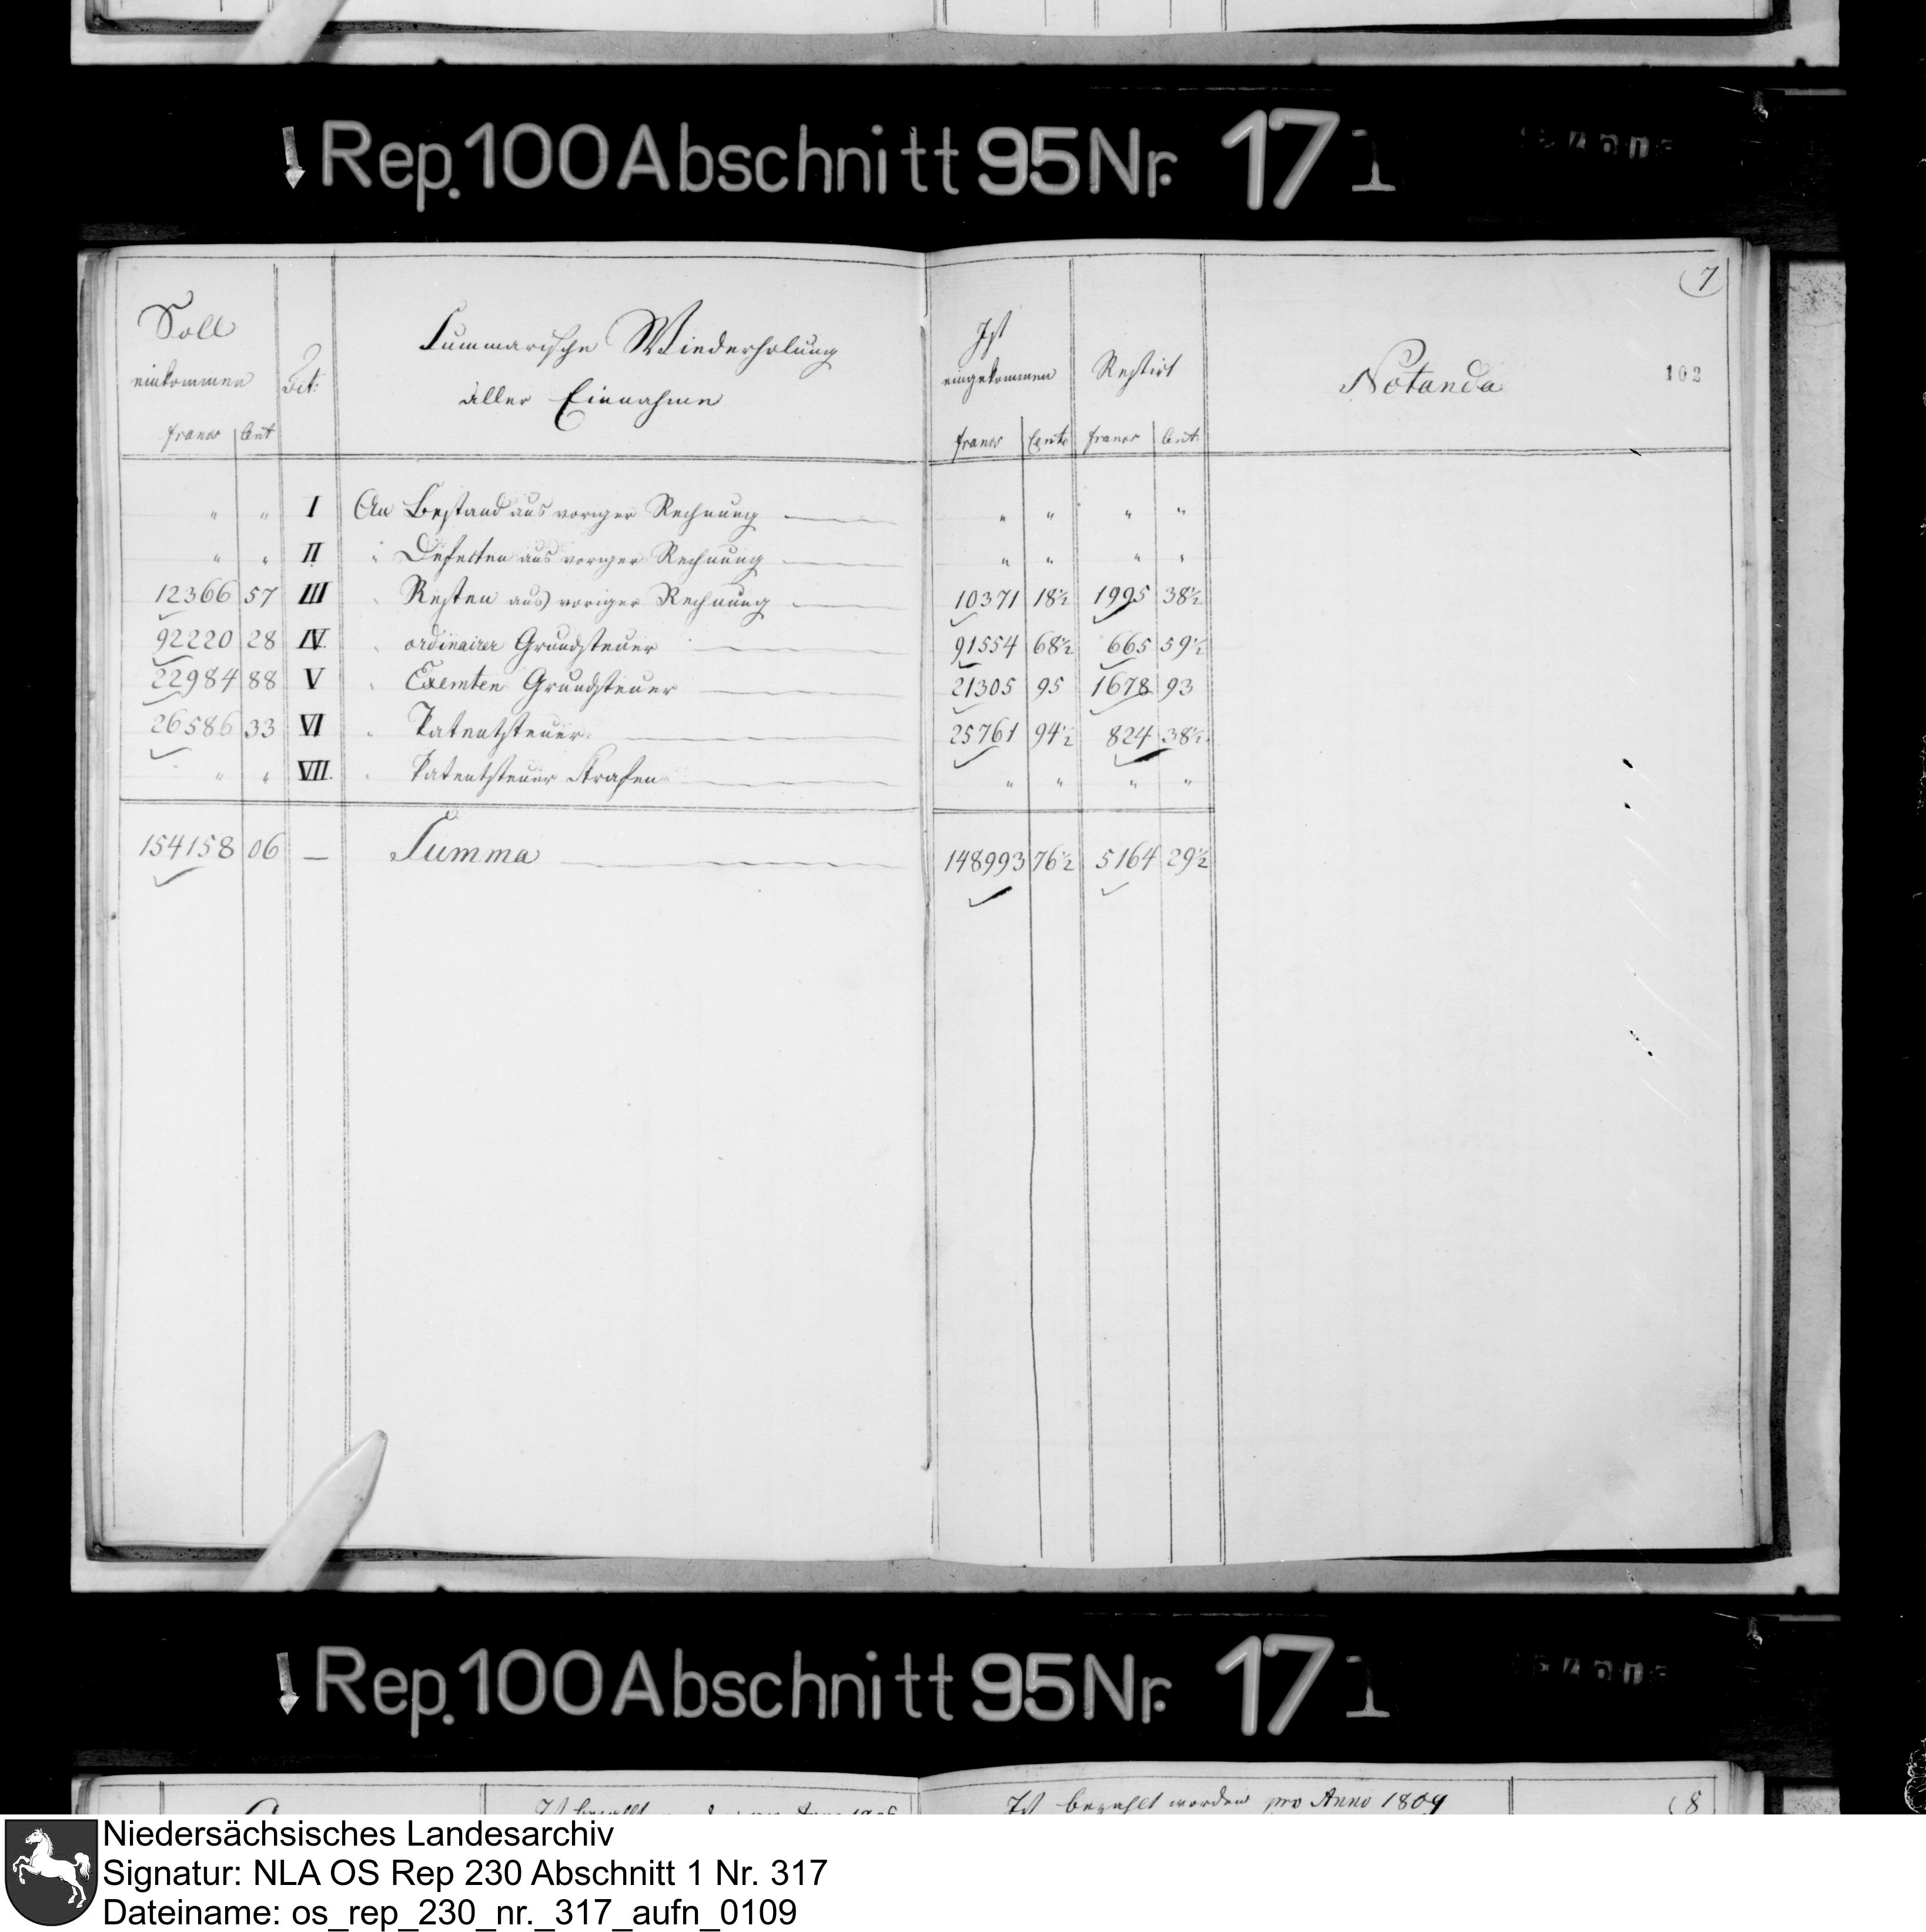 Rep. 100 Abschnitt 95 Nr. 171
7
102
Soll einkommen | Tit: | Summarische Wiederholung aller Einnahme | Ist eingekommen | Restirt | Notanda
francs | Cent | francs | Cents | francs | Cent:
" | " | I | An Bestand aus voriger Rechnung | " | " | " | "
" | " | II | " Defecten aus voriger Rechnung | " | " | " | "
12366 | 57 | III | " Resten aus voriger Rechnung | 10371 | 18½ | 1995 | 38½
92220 | 28 | IV. | " ordinairer Grundsteuer | 91554 | 68½ | 665 | 59½
22984 | 88 | V | " Exemten Grundsteuer | 21305 | 95 | 1678 | 93
26586 | 33 | VI | " Patentsteuer | 25761 | 94½ | 824 | 38½
" | " | VII. | " Patentsteuer Strafen | " | " | " | "
154158 | 06 | — | Summa | 148993 | 76½ | 5164 | 29½
Rep. 100 Abschnitt 95 Nr. 171
Ist bezahlt worden pro Anno 1809
8
Niedersächsisches Landesarchiv
Signatur: NLA OS Rep 230 Abschnitt 1 Nr. 317
Dateiname: os_rep_230_nr._317_aufn_0109